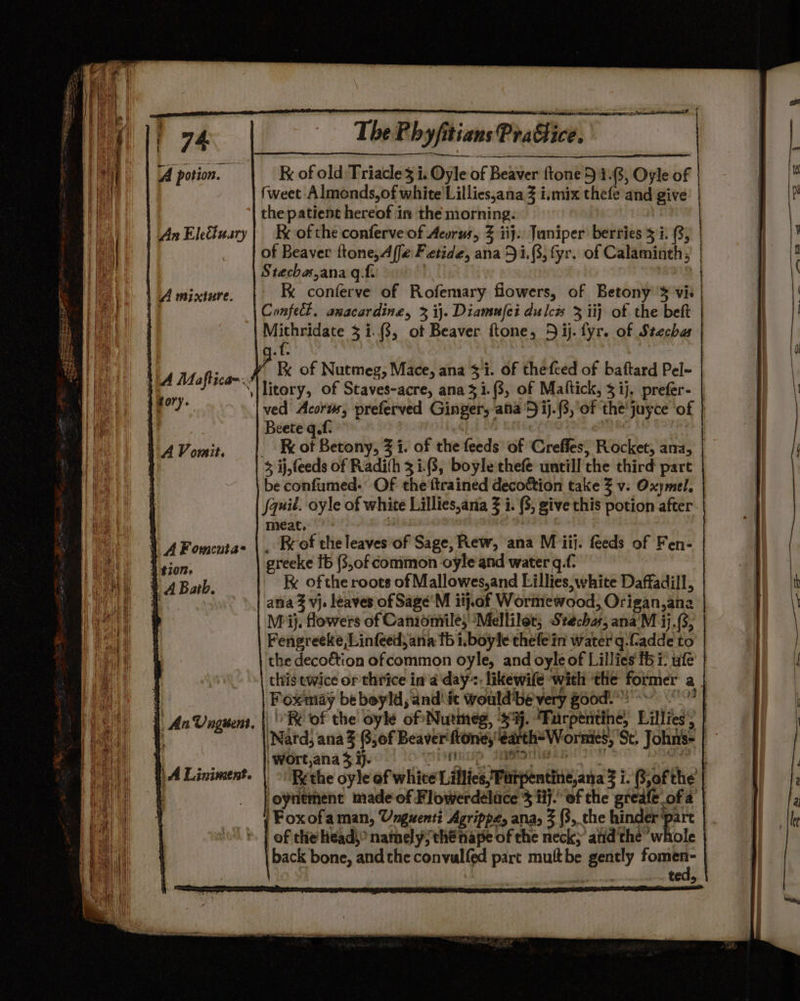 74
The Phyſitians Practice.
A potion.
℞ of old Triacle ʒ i. Oyle of Beaver ſtone ℈ i.ß, Oyle of
ſweet Almonds, of white Lillies, ana ℥ i. mix theſe and give
the patient hereof in the morning.
An Electuary
℞ of the conſerve of Acorus, ℥ iij. Juniper berries ʒ i. ß,
of Beaver ſtone, Aſſe Fetide, ana ℈ i. ß, ſyr. of Calaminth,
Stechas, ana q.ſ.
A mixture.
℞ conſerve of Roſemary flowers, of Betony ℥ vi.
Confect. anacardinæ, ʒ ij. Diamuſci dulcis ʒ iij of the beſt
Mithridate ʒ i. ß, of Beaver ſtone, ℈ ij. ſyr. of Stechas
q.ſ.
A Maſtica-
tory.
℞ of Nutmeg, Mace, ana ʒ i. of the ſeed of baſtard Pel-
litory, of Staves-acre, ana ʒ i. ß, of Maſtick, ʒ ij, preſer-
ved Acorus, preſerved Ginger, ana ℈ ij. ß, of the juyce of
Beete q.ſ.
A Vomit.
℞ of Betony, ℥ i. of the ſeeds of Creſſes, Rocket, ana,
ʒ ij, ſeeds of Radiſh ʒ i. ß, boyle theſe untill the third part
be conſumed. Of the ſtrained decoction take ℥ v. Oxymel,
ſquil. oyle of white Lillies, ana ℥ i. ß, give this potion after
meat.
A Fomenta-
tion.
℞ of the leaves of Sage, Rew, ana M iij. ſeeds of Fen-
greeke ℔ ß, of common oyle and water q.ſ.
A Bath.
℞ of the roots of Mallowes, and Lillies, white Daffadill,
ana ℥ vj. leaves of Sage M iij. of Wormewood, Origan, ana
M ij. flowers of Camomile, Mellilot, Stechas, ana M ij. ß,
Fengreeke, Linſeed, ana ℔ i. boyle theſe in water q.ſ. adde to
the decoction of common oyle, and oyle of Lillies ℔ i. uſe
this twice or thrice in a day: likewiſe with the former a
Fox may be boyld, and it would be very good.
An Unguent.
℞ of the oyle of Nutmeg, ʒ ij. Turpentine, Lillies,
Nard, ana ℥ ß, of Beaver ſtone, earth-Wormes, St. Johns-
wort, ana ʒ ij.
A Liniment.
℞ the oyle of white Lillies, Turpentine, ana ℥ i. ß, of the
oyntment made of Flowerdeluce ʒ iij. of the greaſe of a
Fox of a man, Unguenti Agrippæ, ana, ℥ ß, the hinder part
of the head, namely, the nape of the neck, and the whole
back bone, and the convulſed part muſt be gently fomen-
ted,